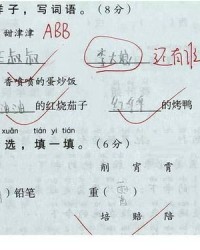 样子，写词语。（8分）
甜津津 ABB
李大娘 还有谁
香喷喷的蛋炒饭
油油的红烧茄子 的烤鸭
xuǎn tián yi tián
选，填一填。（6分）
削 宵 霄
）铅笔 重（
培 赔 陪